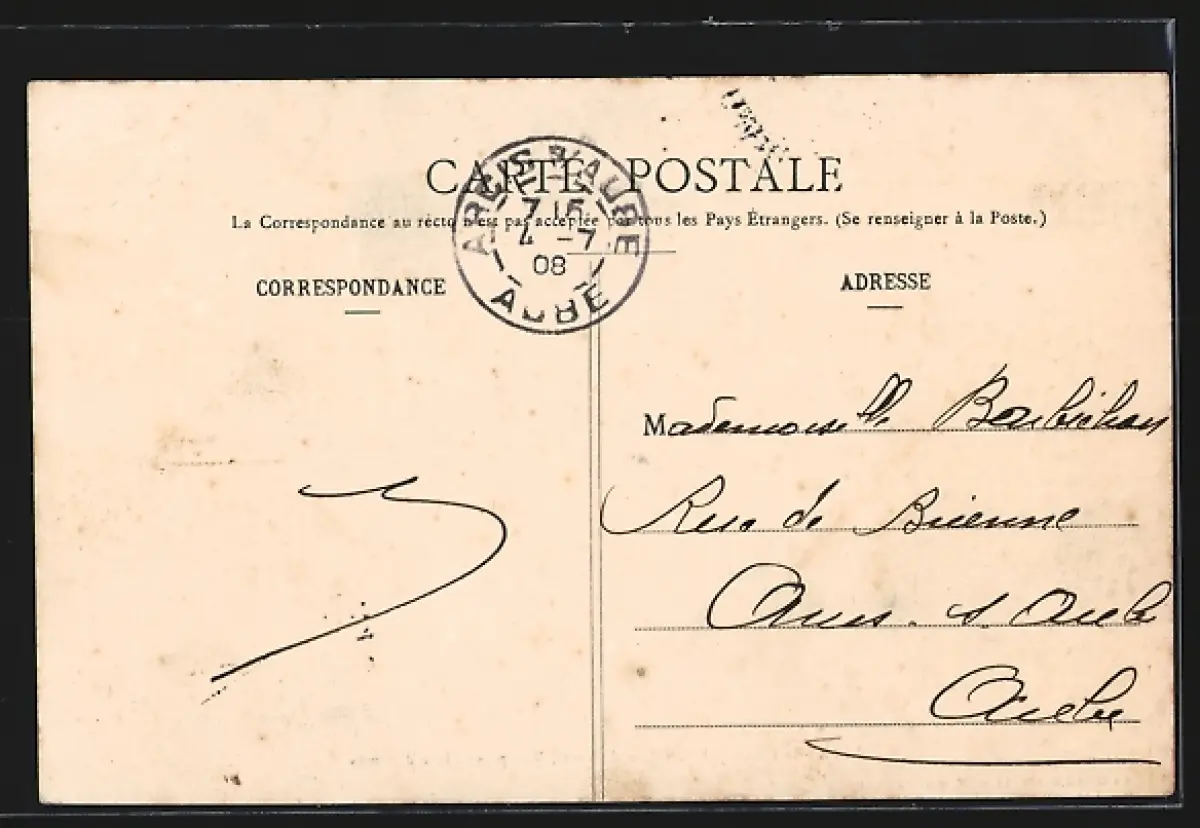 CARTE POSTALE
La Correspondance au recto n'est pas acceptée par tous les Pays Étrangers. (Se renseigner à la Poste.)
ARCIS S/ AUBE
7 15
4 -7
08
AUBE
CORRESPONDANCE
ADRESSE
Mademoiselle Barbichon
Rue de Brienne
Arcis. s. Aube
Aube